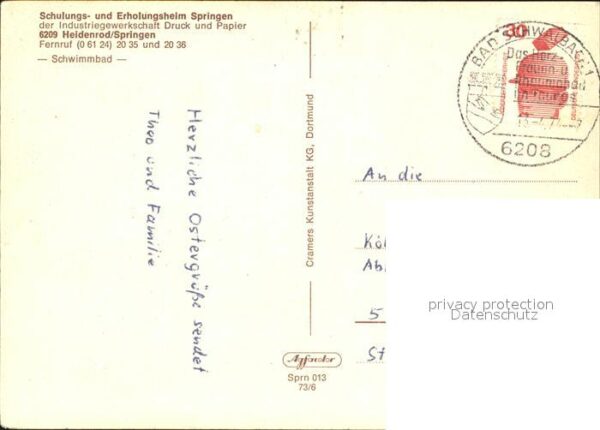 Schulungs- und Erholungsheim Springen
der Industriegewerkschaft Druck und Papier
6209 Heidenrod/Springen
Fernruf (0 61 24) 20 35 und 20 36
— Schwimmbad —
Herzliche Ostergrüße sendet
Theo und Familie
Cramers Kunstanstalt KG, Dortmund
Agfacolor
Sprn 013
73/6
30
BAD SCHWALBACH 1
Das Herz-
Frauen-u
Rheumabad
im Taunus
6208
An die
Köl
Ab
5
St
privacy protection
Datenschutz